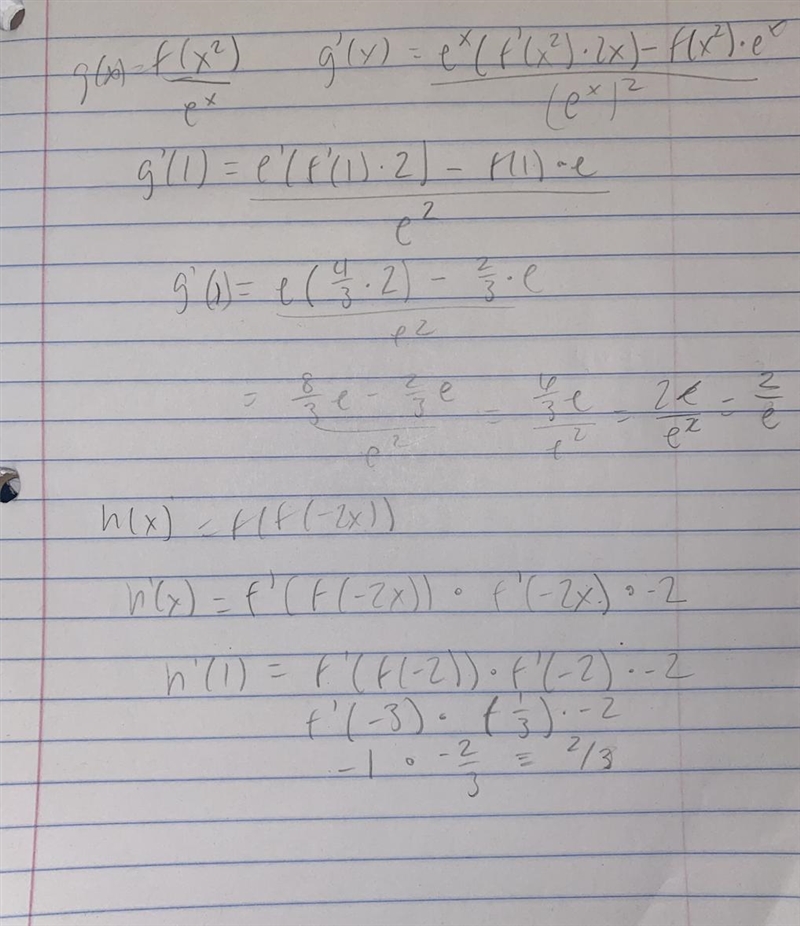 g(x) = f(x²)/eˣ g'(x) = eˣ(f'(x²)·2x) - f(x²)·eˣ/(eˣ)²
g'(1) = e'(f'(1)·2) - f(1)·e/e²
g'(1) = e(4/3·2) - 2/3·e/e²
= 8/3e - 2/3e/e² = 4/3e/e² = 2e/e² = 2/e
h(x) = f(f(-2x))
h'(x) = f'(f(-2x))·f'(-2x)·-2
h'(1) = f'(f(-2))·f'(-2)·-2
f'(-3)·(1/3)·-2
-1·-2/3 = 2/3